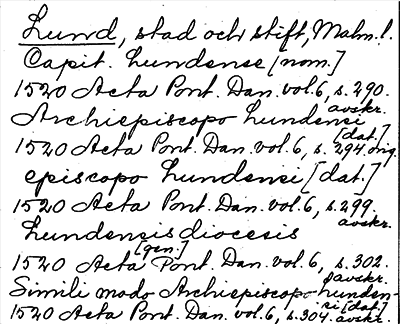 Lund, stad och stift, Malm. l.
Capit. Lundense [nom.]
1520 Acta Pont. Dan. vol. 6, s. 290.
avskr.
Archiepiscopo Lundensi
[dat.]
1520 Acta Pont. Dan. vol. 6, s. 294. orig.
episcopo Lundensi [dat.]
1520 Acta Pont. Dan. vol. 6, s. 299.
avskr.
Lundensis diocesis
[gen.]
1520 Acta Pont. Dan. vol. 6, s. 302.
avskr.
Simili modo Archiepiscopo Lunden-
si [dat.]
1520 Acta Pont. Dan. vol. 6, s. 304. avskr.